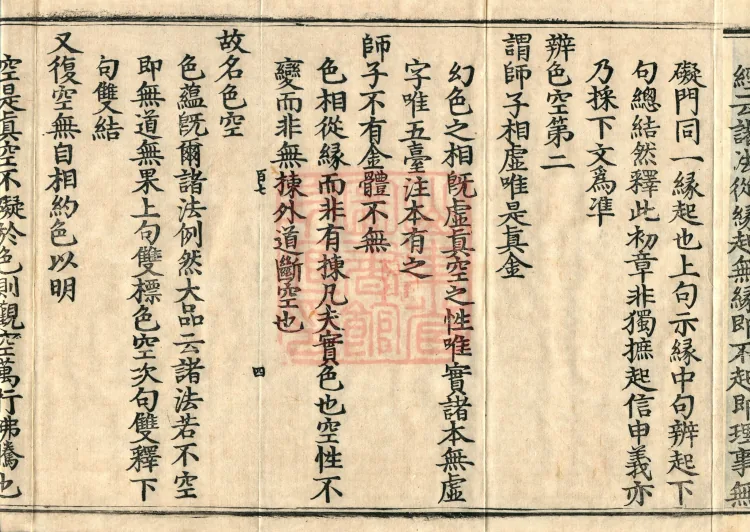 經云諸法從緣起無緣即不起即理事無
礙門同一緣起也上句示緣中句辨起下
句總結然釋此初章非獨摭起信申義亦
乃採下文爲准
辨色空第二
謂師子相虛唯是真金
幻色之相旣虛真空之性唯實諸本無虛
字唯五臺注本有之
師子不有金體不無
色相從緣而非有揀凡夫實色也空性不
變而非無揀外道斷空也
百七 四
故名色空
色蘊旣爾諸法例然大品云諸法若不空
即無道無果上句雙標色空次句雙釋下
句雙結
又復空無自相約色以明
空是真空不礙於色則觀空萬行沸騰也